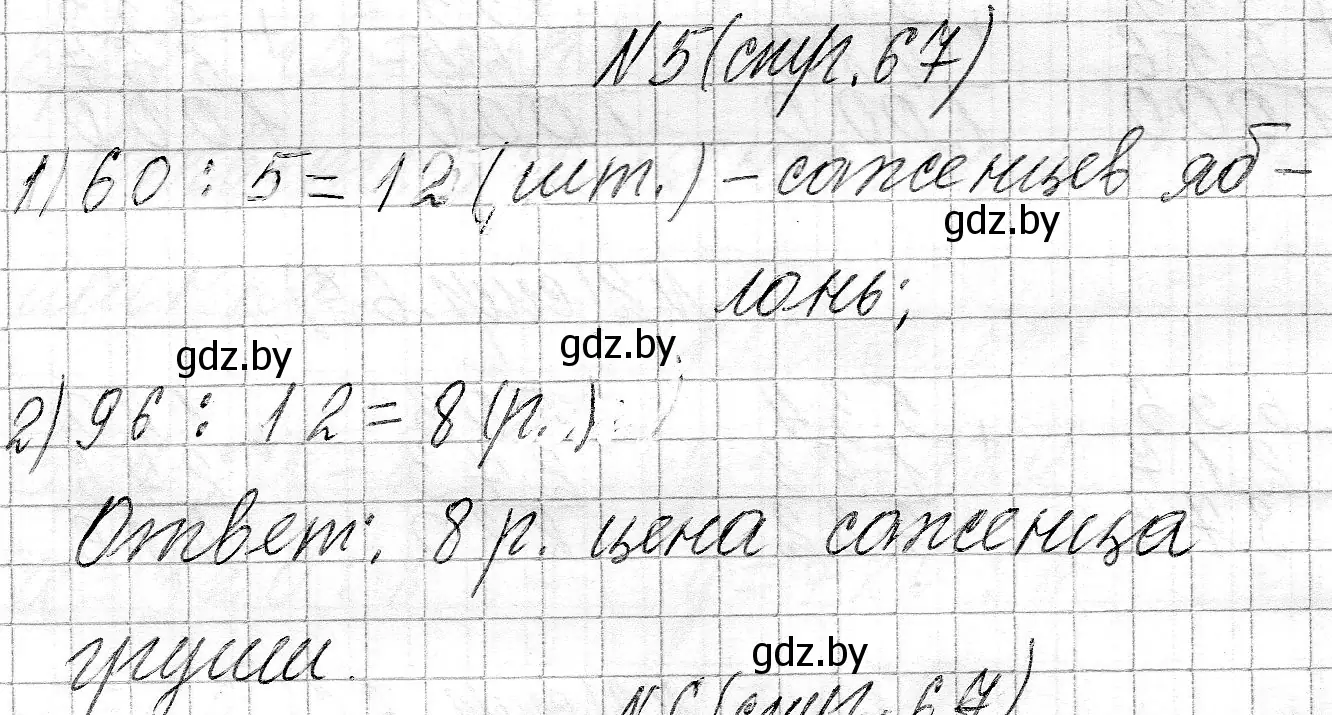 №5 (стр. 67)
1) 60 : 5 = 12 (шт.) - саженцев яб-
gdz.by
лонь;
gdz.by
gdz.by
2) 96 : 12 = 8 (р.)
Ответ: 8 р. цена саженца
груши.
gdz.by
№6 (стр. 67)